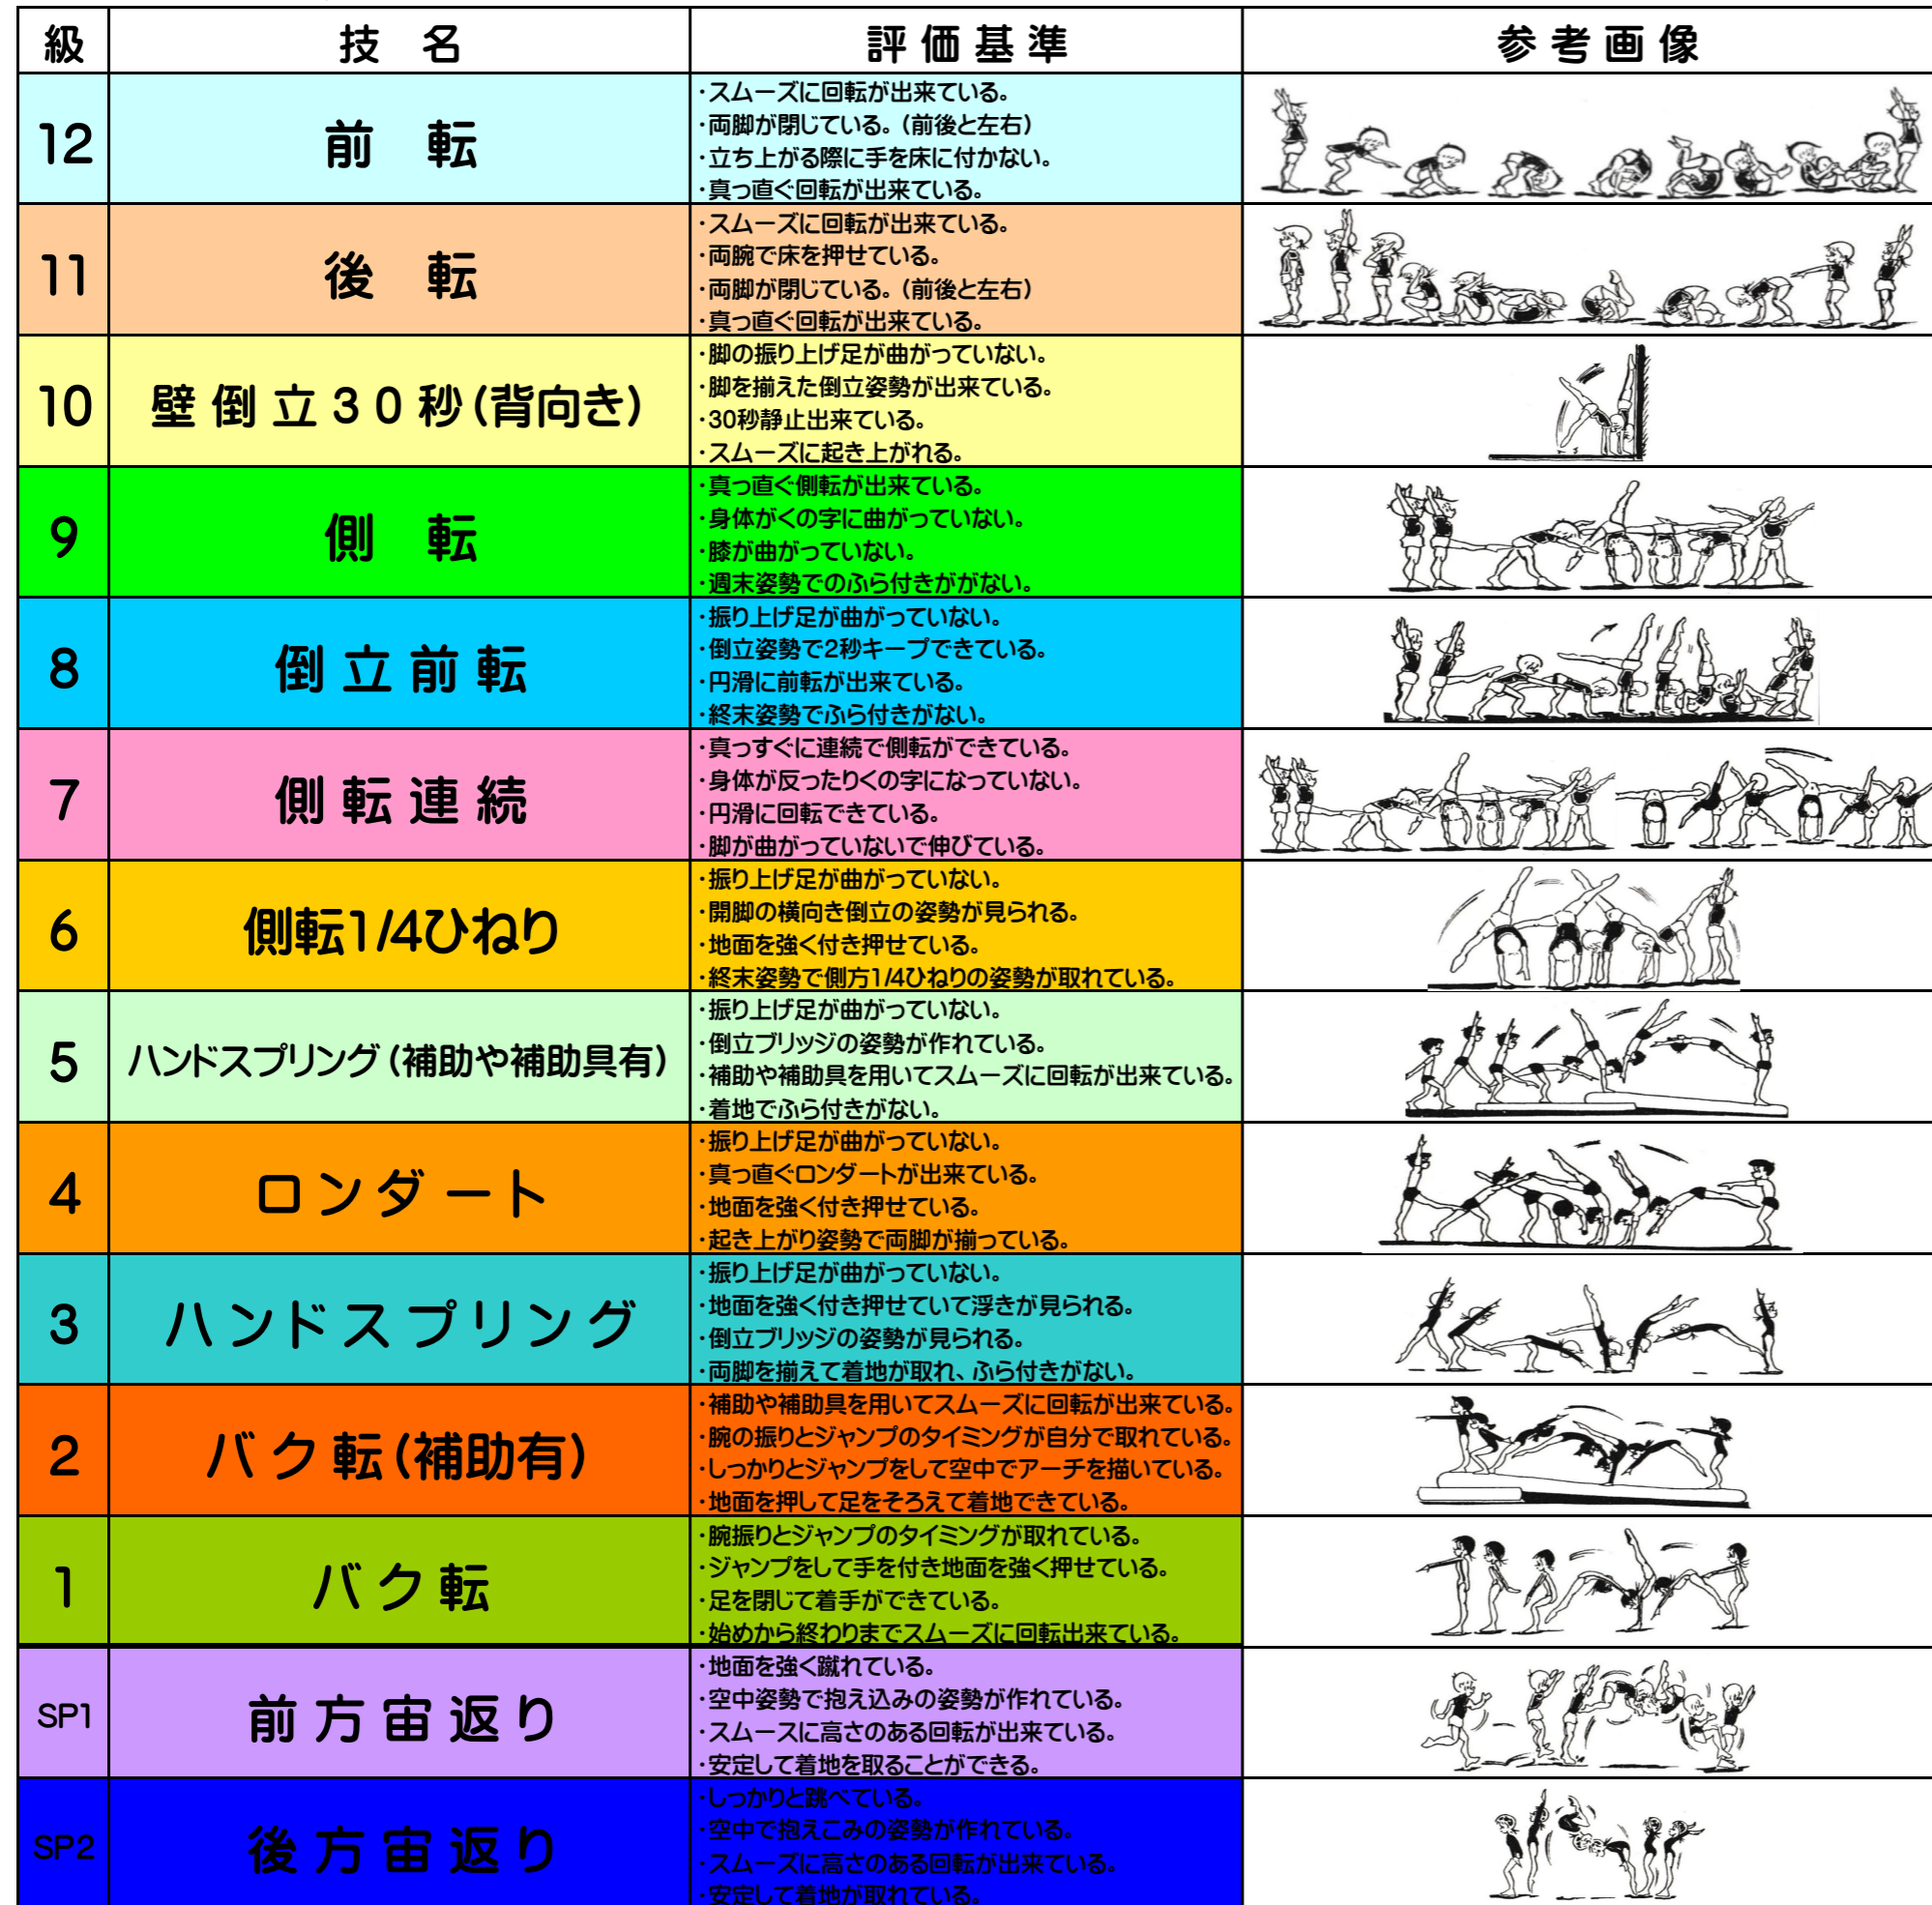 級 技 名 評 価 基 準 参 考 画 像
12 前 転
・スムーズに回転が出来ている。
・両脚が閉じている。(前後と左右)
・立ち上がる際に手を床に付かない。
・真っ直ぐ回転が出来ている。
11 後 転
・スムーズに回転が出来ている。
・両腕で床を押せている。
・両脚が閉じている。(前後と左右)
・真っ直ぐ回転が出来ている。
10 壁 倒 立 3 0 秒(背向き)
・脚の振り上げ足が曲がっていない。
・脚を揃えた倒立姿勢が出来ている。
・30秒静止出来ている。
・スムーズに起き上がれる。
9 側 転
・真っ直ぐ側転が出来ている。
・身体がくの字に曲がっていない。
・膝が曲がっていない。
・週末姿勢でのふら付きががない。
8 倒 立 前 転
・振り上げ足が曲がっていない。
・倒立姿勢で2秒キープできている。
・円滑に前転が出来ている。
・終末姿勢でふら付きがない。
7 側 転 連 続
・真っすぐに連続で側転ができている。
・身体が反ったりくの字になっていない。
・円滑に回転できている。
・脚が曲がっていないで伸びている。
6 側転1/4ひねり
・振り上げ足が曲がっていない。
・開脚の横向き倒立の姿勢が見られる。
・地面を強く付き押せている。
・終末姿勢で側方1/4ひねりの姿勢が取れている。
5 ハンドスプリング(補助や補助具有)
・振り上げ足が曲がっていない。
・倒立ブリッジの姿勢が作れている。
・補助や補助具を用いてスムーズに回転が出来ている。
・着地でふら付きがない。
4 ロ ン ダ ー ト
・振り上げ足が曲がっていない。
・真っ直ぐロンダートが出来ている。
・地面を強く付き押せている。
・起き上がり姿勢で両脚が揃っている。
3 ハ ン ド ス プ リ ン グ
・振り上げ足が曲がっていない。
・地面を強く付き押せていて浮きが見られる。
・倒立ブリッジの姿勢が見られる。
・両脚を揃えて着地が取れ、ふら付きがない。
2 バ ク 転(補助有)
・補助や補助具を用いてスムーズに回転が出来ている。
・腕の振りとジャンプのタイミングが自分で取れている。
・しっかりとジャンプをして空中でアーチを描いている。
・地面を押して足をそろえて着地できている。
1 バ ク 転
・腕振りとジャンプのタイミングが取れている。
・ジャンプをして手を付き地面を強く押せている。
・足を閉じて着手ができている。
・始めから終わりまでスムーズに回転出来ている。
SP1 前 方 宙 返 り
・地面を強く蹴れている。
・空中姿勢で抱え込みの姿勢が作れている。
・スムースに高さのある回転が出来ている。
・安定して着地を取ることができる。
SP2 後 方 宙 返 り
・しっかりと跳べている。
・空中で抱えこみの姿勢が作れている。
・スムーズに高さのある回転が出来ている。
・安定して着地が取れている。